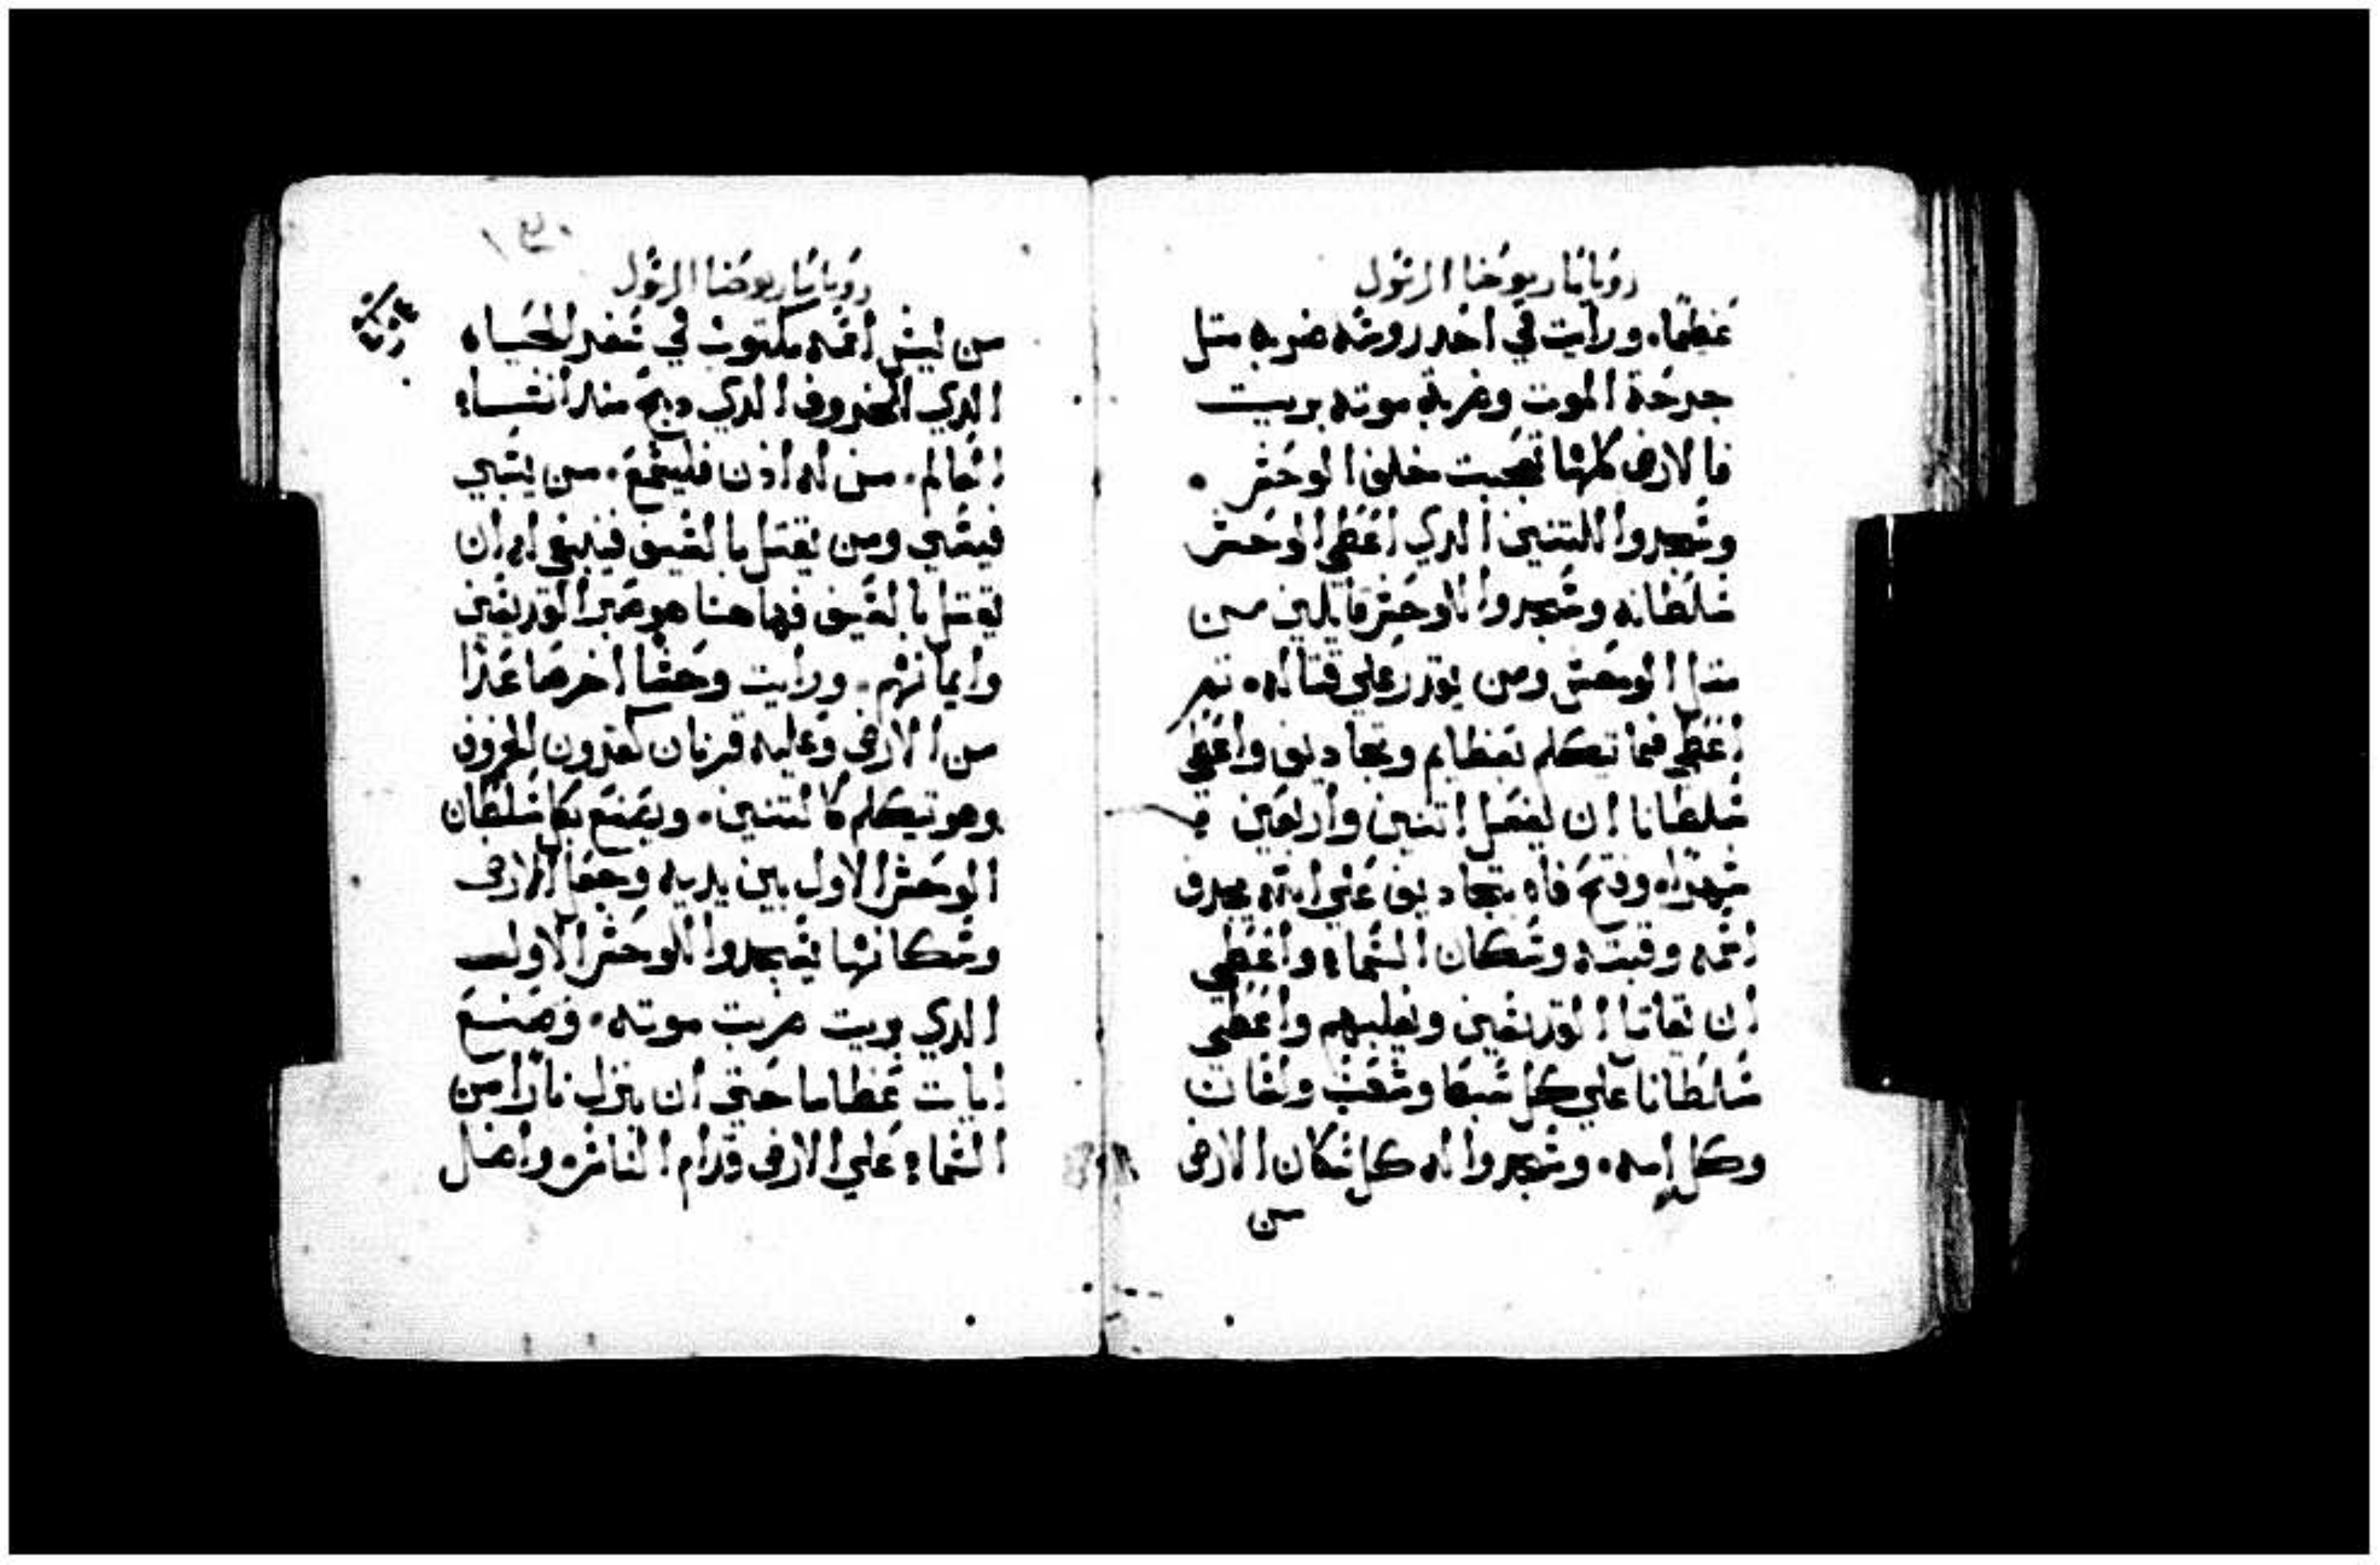 رويا مار يوحنا الرسول
عظيما. ورايت في احد روسه ضربه متل
جرحة الموت وضربة موته بريت
فالارض كلها تعجبت خلف الوحش.
وسجدوا للتنين الدي اعطي الوحش
سلطانه وسجدوا للوحش قايلين من
متل الوحش ومن يقدر علي قتاله. تم
اعطي فما تيكلم بعظايم وتجاديف واعطي
سلطانا ان يفعل اتنين واربعين
شهرا. وفتح فاه بتجاديف علي الله يجدف
اسمه وقبته وسكان السماء واعطي
ان يقاتل القديسين ويغلبهم واعطي
سلطانا علي كل سبط وشعب ولسان
وكل امه. وسجدوا له كل سكان الارض
من
رويا مار يوحنا الرسول
من ليس اسمه مكتوب في سفر الحياه
الدي الخروف الدي دبح مند انشاء
العالم. من له اذن فليسمع. من يسبي
فيسبي ومن يقتل بالسيف فينبغي له ان
يقتل بالسيف فهاهنا هو صبر القديسين
وايمانهم. ورايت وحشا اخر صاعدا
من الارض وعليه قرنان كقرون الخروف
وهو تيكلم كالتنين. ويصنع بكل سلطان
الوحش الاول بين يديه وجعل الارض
وسكانها يسجدوا للوحش الاول
الدي بريت ضربت موته. وصنع
ايات عظاما حتي ان ينزل نارا من
السماء علي الارض قدام الناس. واضل